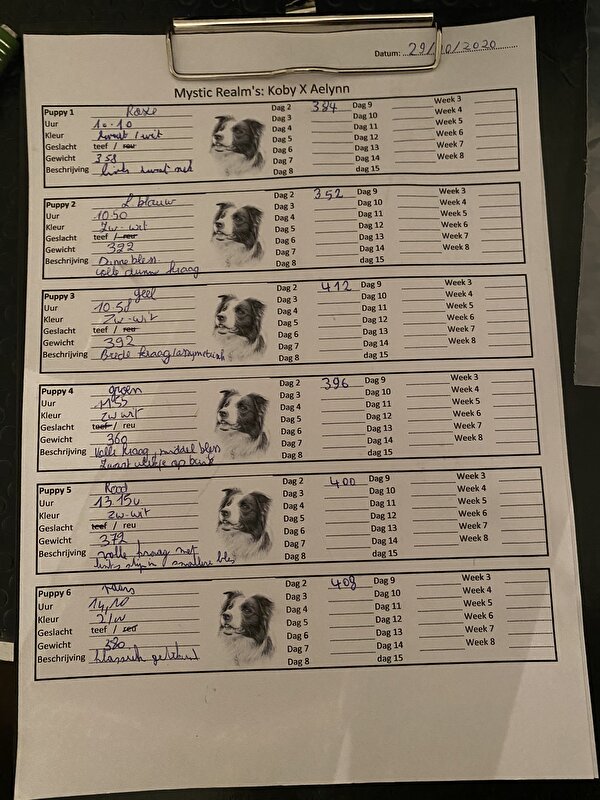 Datum: 29/10/2020
Mystic Realm's: Koby X Aelynn
Puppy 1 Roze Dag 2 384 Dag 9 Week 3
Uur 10.10 Dag 3 Dag 10 Week 4
Kleur zwart / wit Dag 4 Dag 11 Week 5
Geslacht teef / reu Dag 5 Dag 12 Week 6
Gewicht 358 Dag 6 Dag 13 Week 7
Beschrijving links zwart Dag 7 Dag 14 Week 8
Dag 8 dag 15
Puppy 2 L blauw Dag 2 352 Dag 9 Week 3
Uur 10.50 Dag 3 Dag 10 Week 4
Kleur Zw-wit Dag 4 Dag 11 Week 5
Geslacht teef / reu Dag 5 Dag 12 Week 6
Gewicht 322 Dag 6 Dag 13 Week 7
Beschrijving Dunne bles Dag 7 Dag 14 Week 8
volle dunne kraag Dag 8 dag 15
Puppy 3 geel Dag 2 412 Dag 9 Week 3
Uur 10.58 Dag 3 Dag 10 Week 4
Kleur Zw-wit Dag 4 Dag 11 Week 5
Geslacht teef / reu Dag 5 Dag 12 Week 6
Gewicht 392 Dag 6 Dag 13 Week 7
Beschrijving Brede kraag Dag 7 Dag 14 Week 8
Dag 8 dag 15
Puppy 4 groen Dag 2 396 Dag 9 Week 3
Uur Dag 3 Dag 10 Week 4
Kleur zw wit Dag 4 Dag 11 Week 5
Geslacht teef / reu Dag 5 Dag 12 Week 6
Gewicht 360 Dag 6 Dag 13 Week 7
Beschrijving Volle kraag, middel bles Dag 7 Dag 14 Week 8
Zwart vlekje op Dag 8 dag 15
Puppy 5 Rood Dag 2 400 Dag 9 Week 3
Uur 13.15u Dag 3 Dag 10 Week 4
Kleur zw-wit Dag 4 Dag 11 Week 5
Geslacht teef / reu Dag 5 Dag 12 Week 6
Gewicht 372 Dag 6 Dag 13 Week 7
Beschrijving volle kraag met Dag 7 Dag 14 Week 8
links smallere bles Dag 8 dag 15
Puppy 6 Dag 2 408 Dag 9 Week 3
Uur 14,10 Dag 3 Dag 10 Week 4
Kleur Dag 4 Dag 11 Week 5
Geslacht teef / reu Dag 5 Dag 12 Week 6
Gewicht 380 Dag 6 Dag 13 Week 7
Beschrijving klassiek getekend Dag 7 Dag 14 Week 8
Dag 8 dag 15